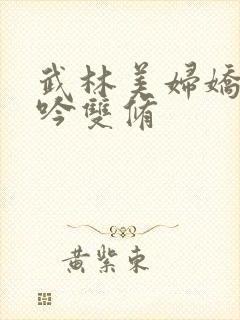 武林美婦嬌
吟雙脩
黃紫東